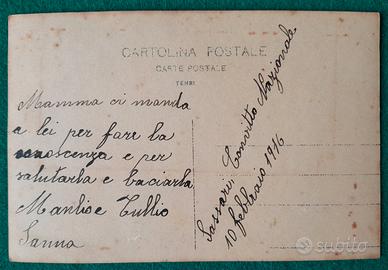 CARTOLINA POSTALE
CARTE POSTALE
TENSI
Mamma ci manda
a lei per fare la
conoscenza e per
salutarla e baciarla
Manlio e Tullio
Sanna
Sassari Convitto Nazionale
10 febbraio 1916
subito